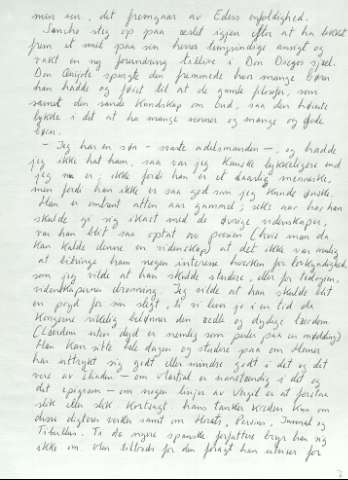 men san, det fremgaar av Eders enfoldighed.
Sancho steg op paa æslet igjen efter at ha lokket
frem et smil paa sin herres tungsindige ansigt og
vakt en ny forundring tillive i Don Diegos sjæl.
Don Quijote spurgte den fremmede hvor mange børn
han hadde og føiet til at de gamle filosofer, som
savnet den sande kundskap om Gud, saa den høieste
lykke i det at ha mange venner og mange og gode
børn.
- Jeg har en søn - svarte adelsmanden -, og hadde
jeg ikke hat ham, saa var jeg kanske lykkeligere end
jeg nu er; ikke fordi han er et daarlig menneske,
men fordi han ikke er saa god som jeg kunde ønske.
Han er omtrent atten aar gammel; seks aar har han
skulde gi sig ikast med de øvrige videnskaper,
var han blit saa optat av poesien (hvis man da
kan kalde denne en videnskap) at det ikke var mulig
at bibringe ham nogen interesse hverken for lovkyndighed,
som jeg vilde at han skulde studere, eller for teologien,
videnskapernes dronning. Jeg vilde at han skulde bli
en pryd for sin slegt, ti vi lever jo i en tid da
Kongerne rikelig belønner den ædle og dydige lærdom
(Lærdom uten dyd er nemlig som perler paa en mødding)
Han kan sitte hele dagen og studere paa om Homer
har uttrykt sig godt eller mindre godt i det og det
vers av Iliaden - om Martial er uanstændig i det og
det epigram - om nogen linjer av Vergil er at forstaa
slik eller slik. Kortsagt: hans tanker kredser kun om
disse digteres verker samt om Horats, Persius, Juvenal og
Tibullus. Ti de nyere spanske forfattere bryr han sig
ikke om. Men tiltrods for den foragt han nærer for